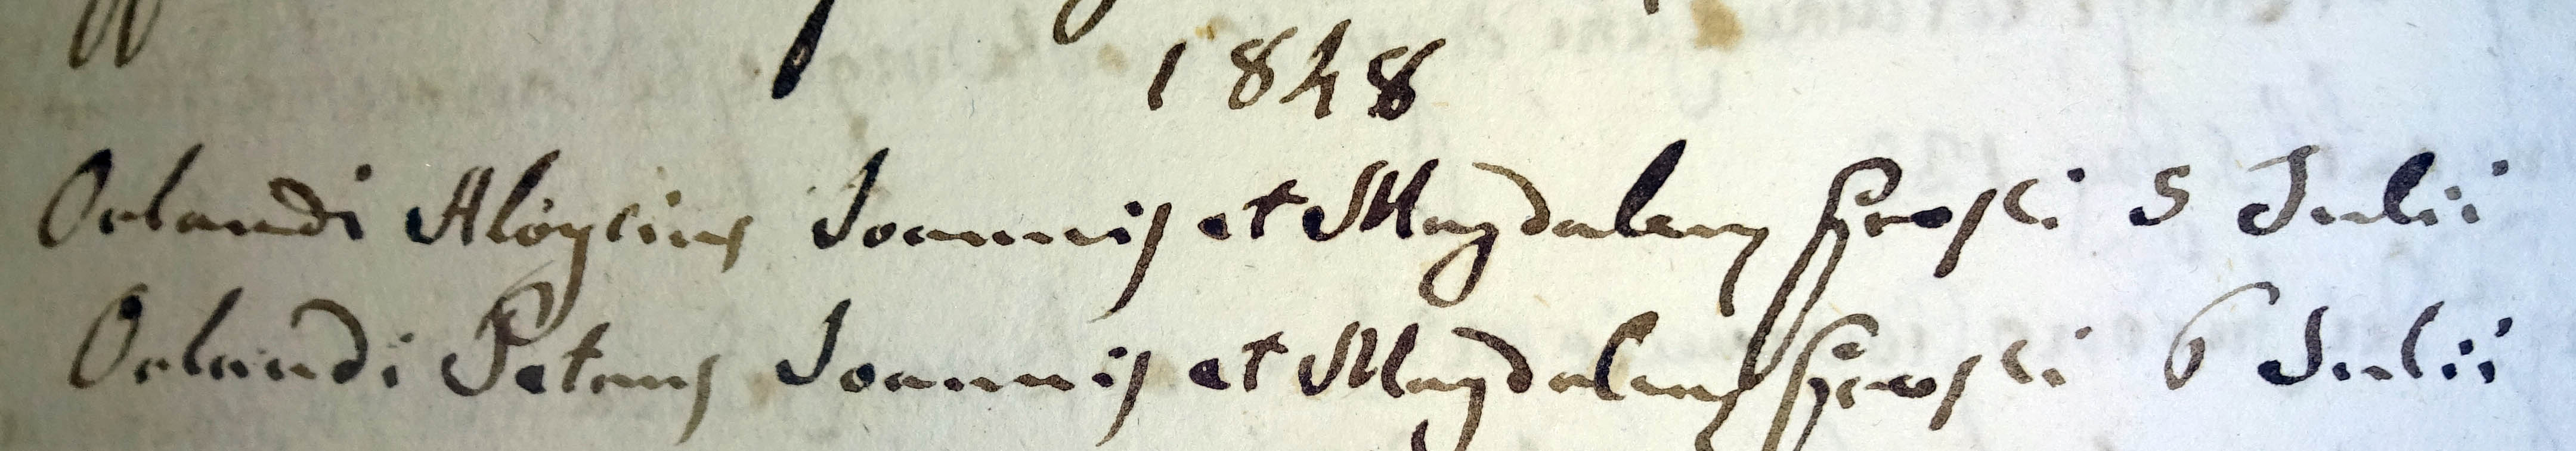 1848
Orlandi Aloysius Joannis et Magdalenę 5 Julii
Orlandi Petrus Joannis et Magdalenę 6 Julii